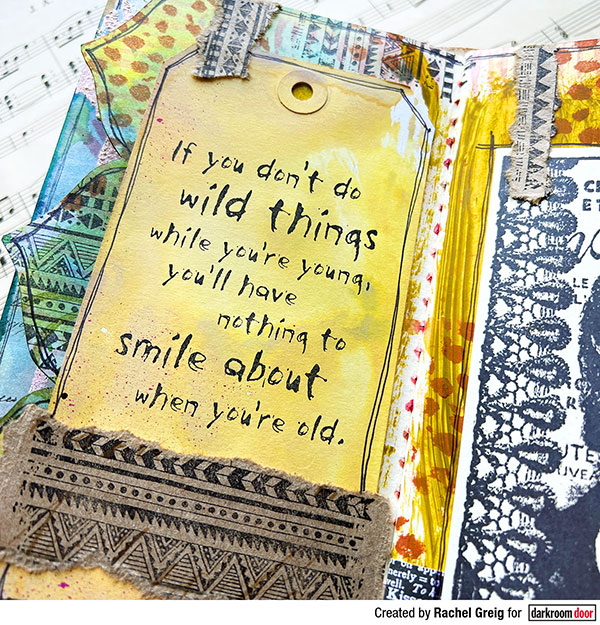 If you don't do
wild things
while you're young,
you'll have
nothing to
smile about
when you're old.
Created by Rachel Greig for darkroom door